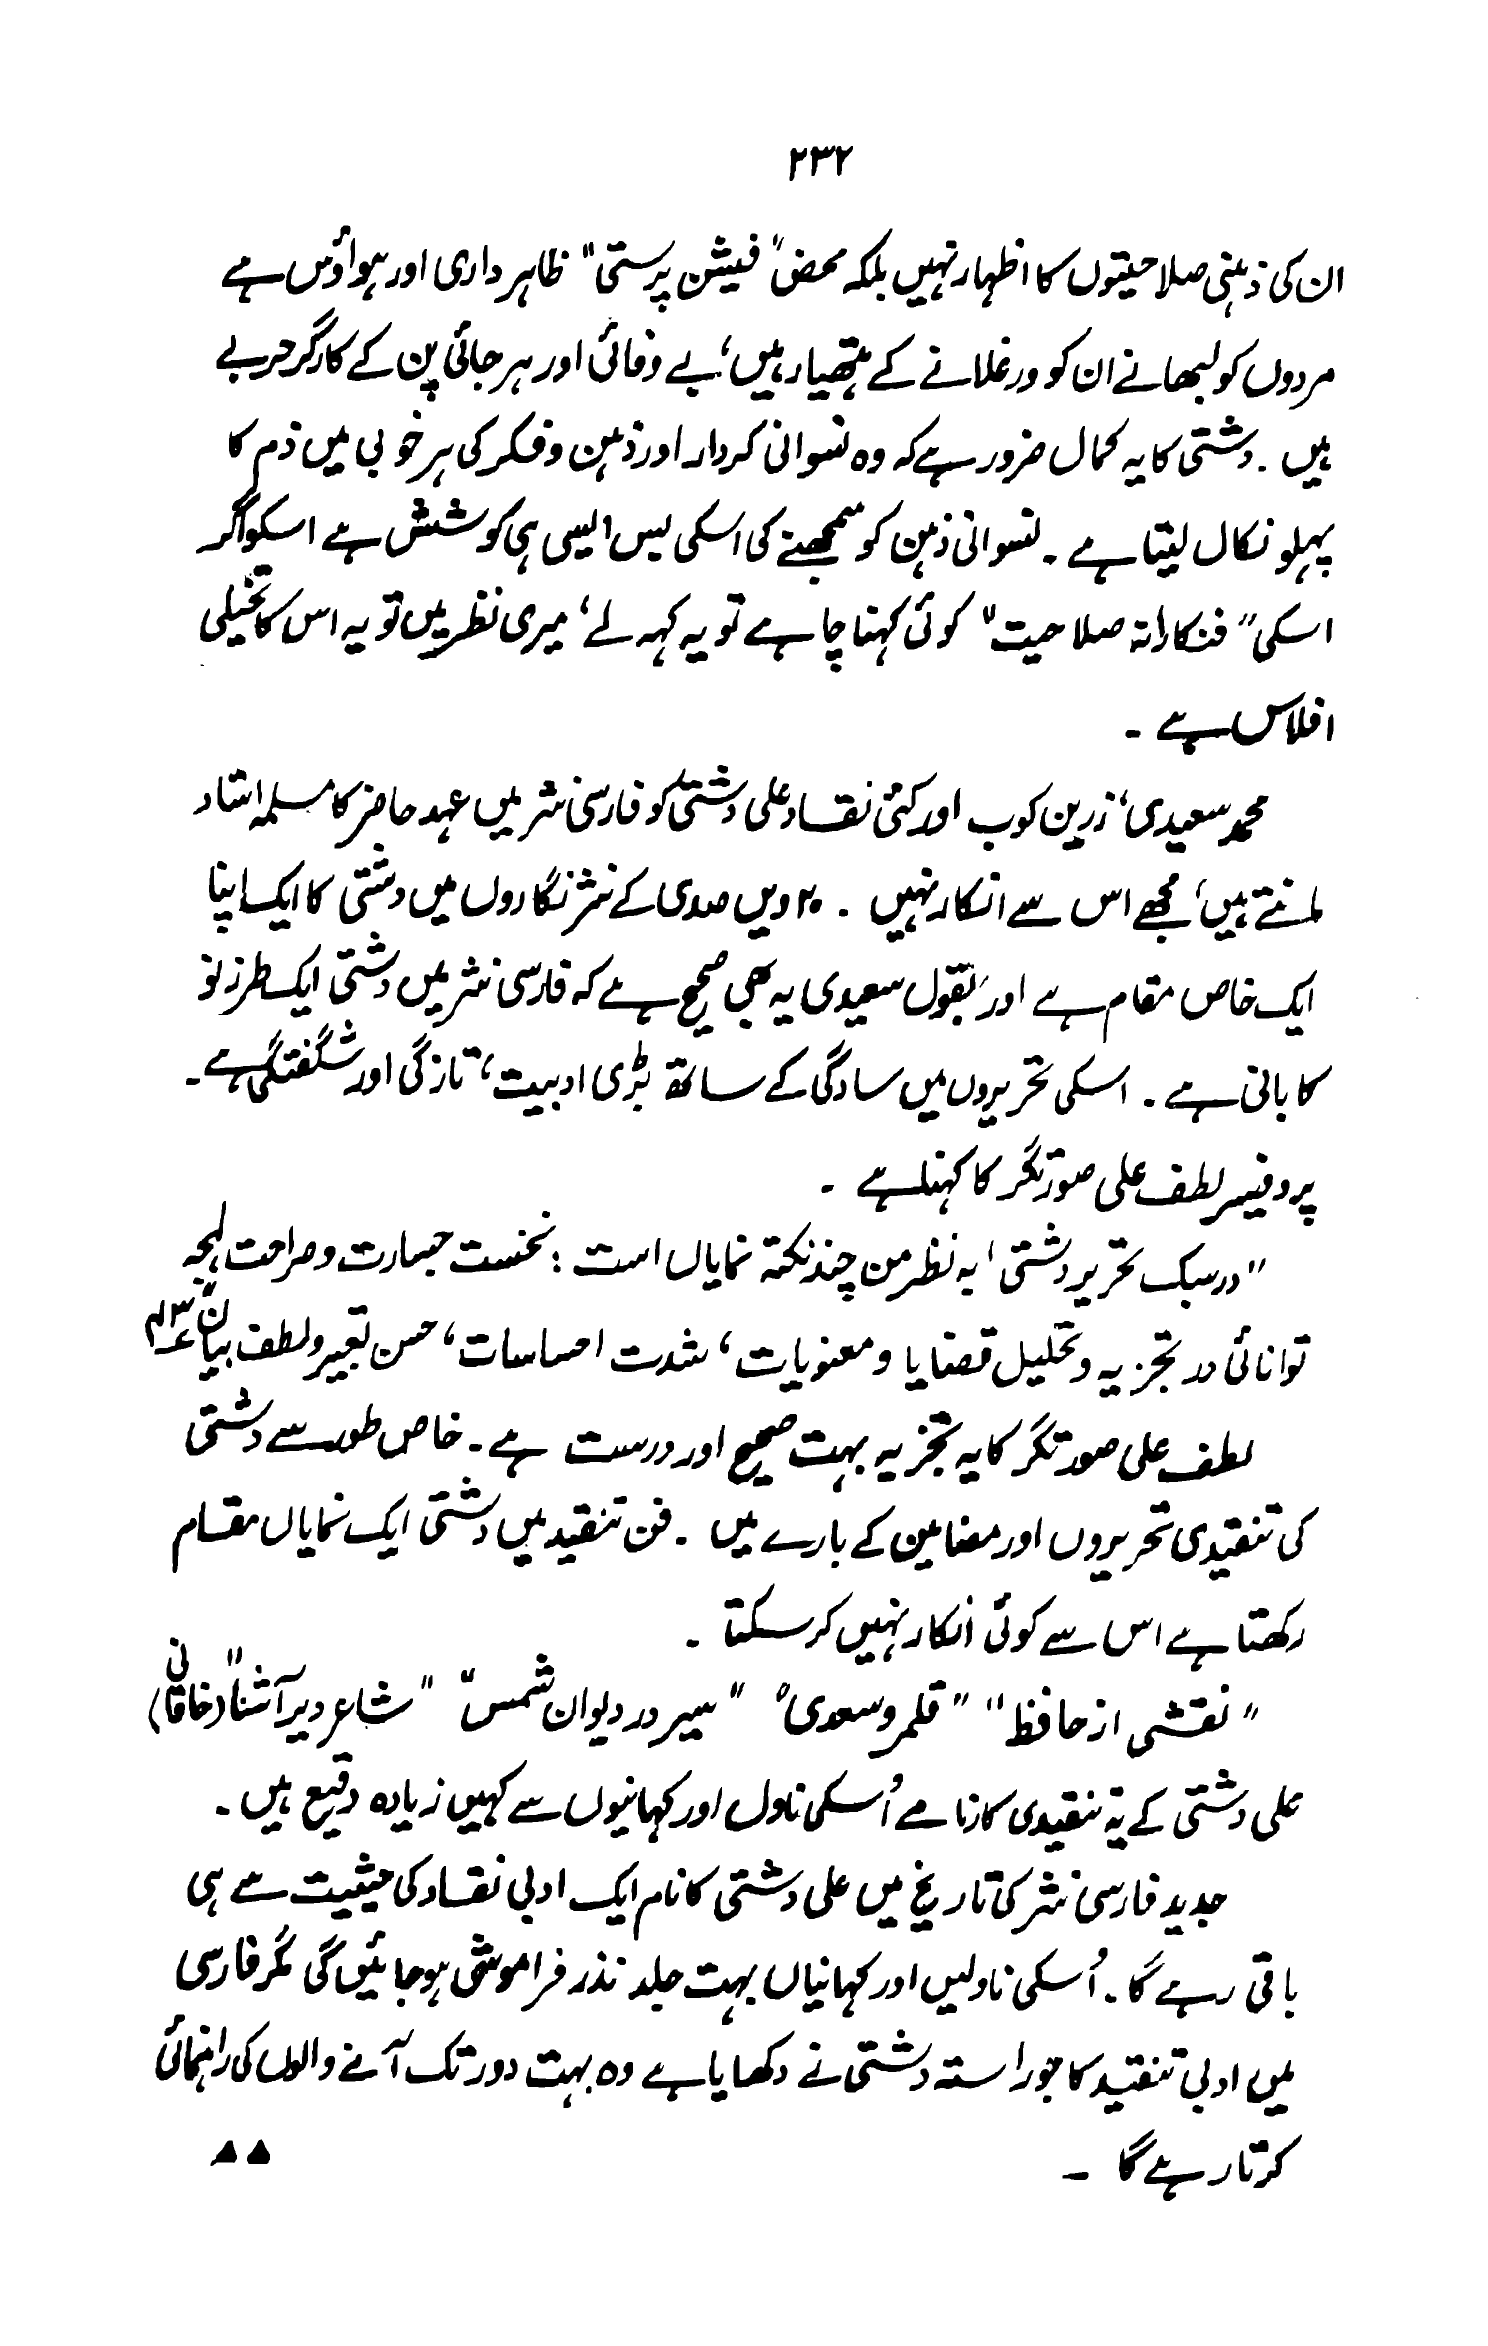 ۲۳۲
ان کی ذہنی صلاحیتوں کا اظہار نہیں بلکہ محض "فیشن پرستی" ظاہر داری اور ہواؤس ہے
مردوں کو لبھانے ان کو ورغلانے کے ہتھیار ہیں، بے وفائی اور ہرجائی پن کے کارگر حربے
ہیں ۔ دشتی کا یہ کمال ضرور ہے کہ وہ نسوانی کردار اور ذہن و فکر کی ہر خوبی میں ذم کا
پہلو نکال لیتا ہے ۔ نسوانی ذہن کو سمجھنے کی اسکی بس ایسی ہی کوشش ہے اسکو اگر
اسکی "فنکارانہ صلاحیت" کوئی کہنا چاہے تو یہ کہہ لے، میری نظر میں تو یہ اس کا تخیلی
افلاس ہے ۔
محمد سعیدی، زرین کوب اور کئی نقاد علی دشتی کو فارسی نثر میں عہد حاضر کا مسلمہ استاد
مانتے ہیں، مجھے اس سے انکار نہیں ۔ ۲۰ ویں صدی کے نثر نگاروں میں دشتی کا ایک اپنا
ایک خاص مقام ہے اور بقول سعیدی یہ بھی صحیح ہے کہ فارسی نثر میں دشتی ایک طرز نو
کا بانی ہے ۔ اسکی تحریروں میں سادگی کے ساتھ بڑی ادبیت، تازگی اور شگفتگی ہے ۔
پروفیسر لطف علی صورتگر کا کہنا ہے ۔
"در سبک تحریر دشتی، بہ نظر من چند نکتہ نمایاں است : نخست جسارت و صراحت لہجہ
توانائی در تجزیہ و تحلیل قضایا و معنویات، شدت احساسات، حسن تعبیر و لطف بیان"
لطف علی صورتگر کا یہ تجزیہ بہت صحیح اور درست ہے ۔ خاص طور سے دشتی
کی تنقیدی تحریروں اور مضامین کے بارے میں ۔ فن تنقید میں دشتی ایک نمایاں مقام
رکھتا ہے اس سے کوئی انکار نہیں کر سکتا ۔
"نقشی از حافظ" "قلمرو سعدی" "سیر در دیوان شمس" "شاعر دیر آشنا" (خاقانی)
علی دشتی کے یہ تنقیدی کارنامے اُسکی ناول اور کہانیوں سے کہیں زیادہ وقیع ہیں ۔
جدید فارسی نثر کی تاریخ میں علی دشتی کا نام ایک ادبی نقاد کی حیثیت سے ہی
باقی رہے گا ۔ اُسکی ناولیں اور کہانیاں بہت جلد نذر فراموشی ہو جائیں گی مگر فارسی
میں ادبی تنقید کا جو راستہ دشتی نے دکھایا ہے وہ بہت دور تک آنے والوں کی راہنمائی
کرتا رہے گا ۔